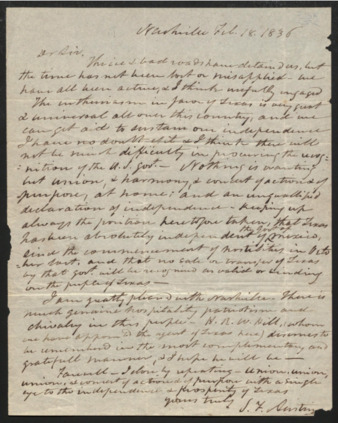 Nashville Feb. 18. 1836
Dr Sir.
The ice & bad roads have detained us, but
the time has not been lost or misapplied — we
have all been active, & I think usefully engaged
The enthusiasm in favor of Texas is very great
& universal all over this country, and we
can get aid to sustain our independence
I have no doubt of it & I think there will
not be much difficulty in procuring the recog-
nition of the U.S. Govt. Nothing is wanting
but union & harmony, & concert of action &
purpose, at home: and an unqualified
declaration of independence — keeping up
always the position heretofore taken, that Texas
has been absolutely independent of the Govt. of Mexico,
since the commencement of hostilities in Octo-
ber last, and that no sale or transfer of Texas
by that Govt. will be recognised as valid or binding
on the people of Texas —
I am greatly pleased with Nashville. There is
much genuine hospitality, patriotism and
chivalry in this people — H. R. W. Hill, whom
we have appointed the agent of Texas here, deserves to
be remembered in the most complimentary and
gratefull manner, & I hope he will be —
Farewell — I close by repeating — Union, union,
union, & concert of action & purpose with a single
eye to the independence & prosperity of Texas
yours truly
S. F. Austin